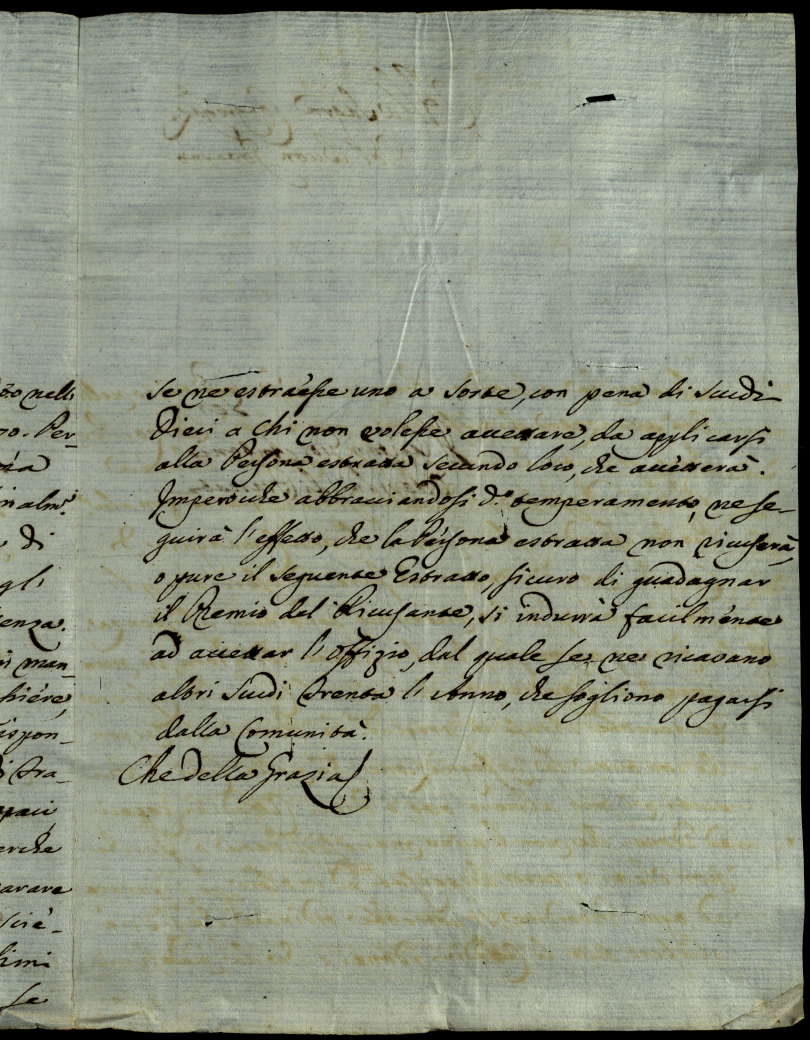 to nell
zo. Per
za
nalm.
di
gli
enza.
n man-
siére,
ispon-
di tra-
paci
erche
arare
scie-
simi
se
se ne estraesse uno a sorte, con pena di Scudi
Dieci a chi non volesse accettare, da applicarsi
alla Persona estratta secundo loco, che accetterà.
Imperoche abbracciandosi d.º temperamento, ne se-
guirà l'effetto, che la Persona estratta non ricuserà,
o pure il seguente Estratto, sicuro di guadagnar
il Premio del Ricusante, si indurrà facilmente
ad accettar l'Offizio, dal quale se ne ricavano
altri Scudi trenta l'Anno, che sogliono pagarsi
dalla Comunità.
Che della Grazia